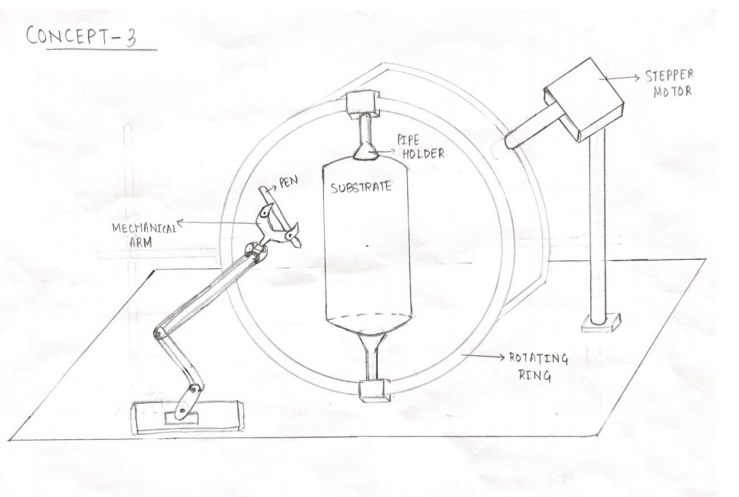 CONCEPT-3
STEPPER
MOTOR
PIPE
HOLDER
PEN
SUBSTRATE
MECHANICAL
ARM
ROTATING
RING